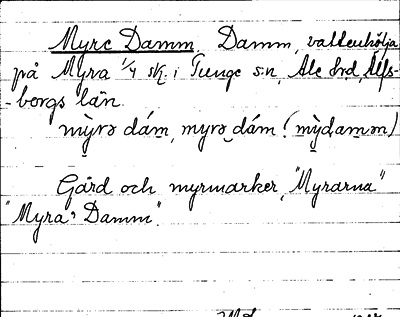 Myre Damm, Damm, vattenhölja
på Myra 1/4 sk. i Tunge s:n, Ale hd, Älfs-
-borgs län.
mỳrə dám, myrə dám (mỳdamən)
Gård och myrmarker, "Myrarna"
"Myra Damm".